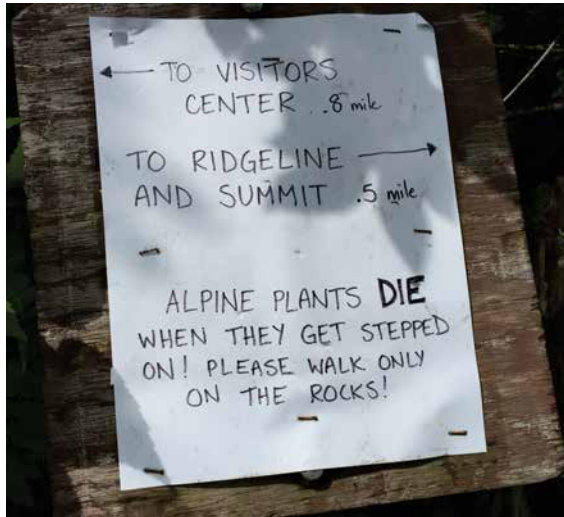 ← TO VISITORS
CENTER .8 mile
TO RIDGELINE →
AND SUMMIT .5 mile
ALPINE PLANTS DIE
WHEN THEY GET STEPPED
ON! PLEASE WALK ONLY
ON THE ROCKS!